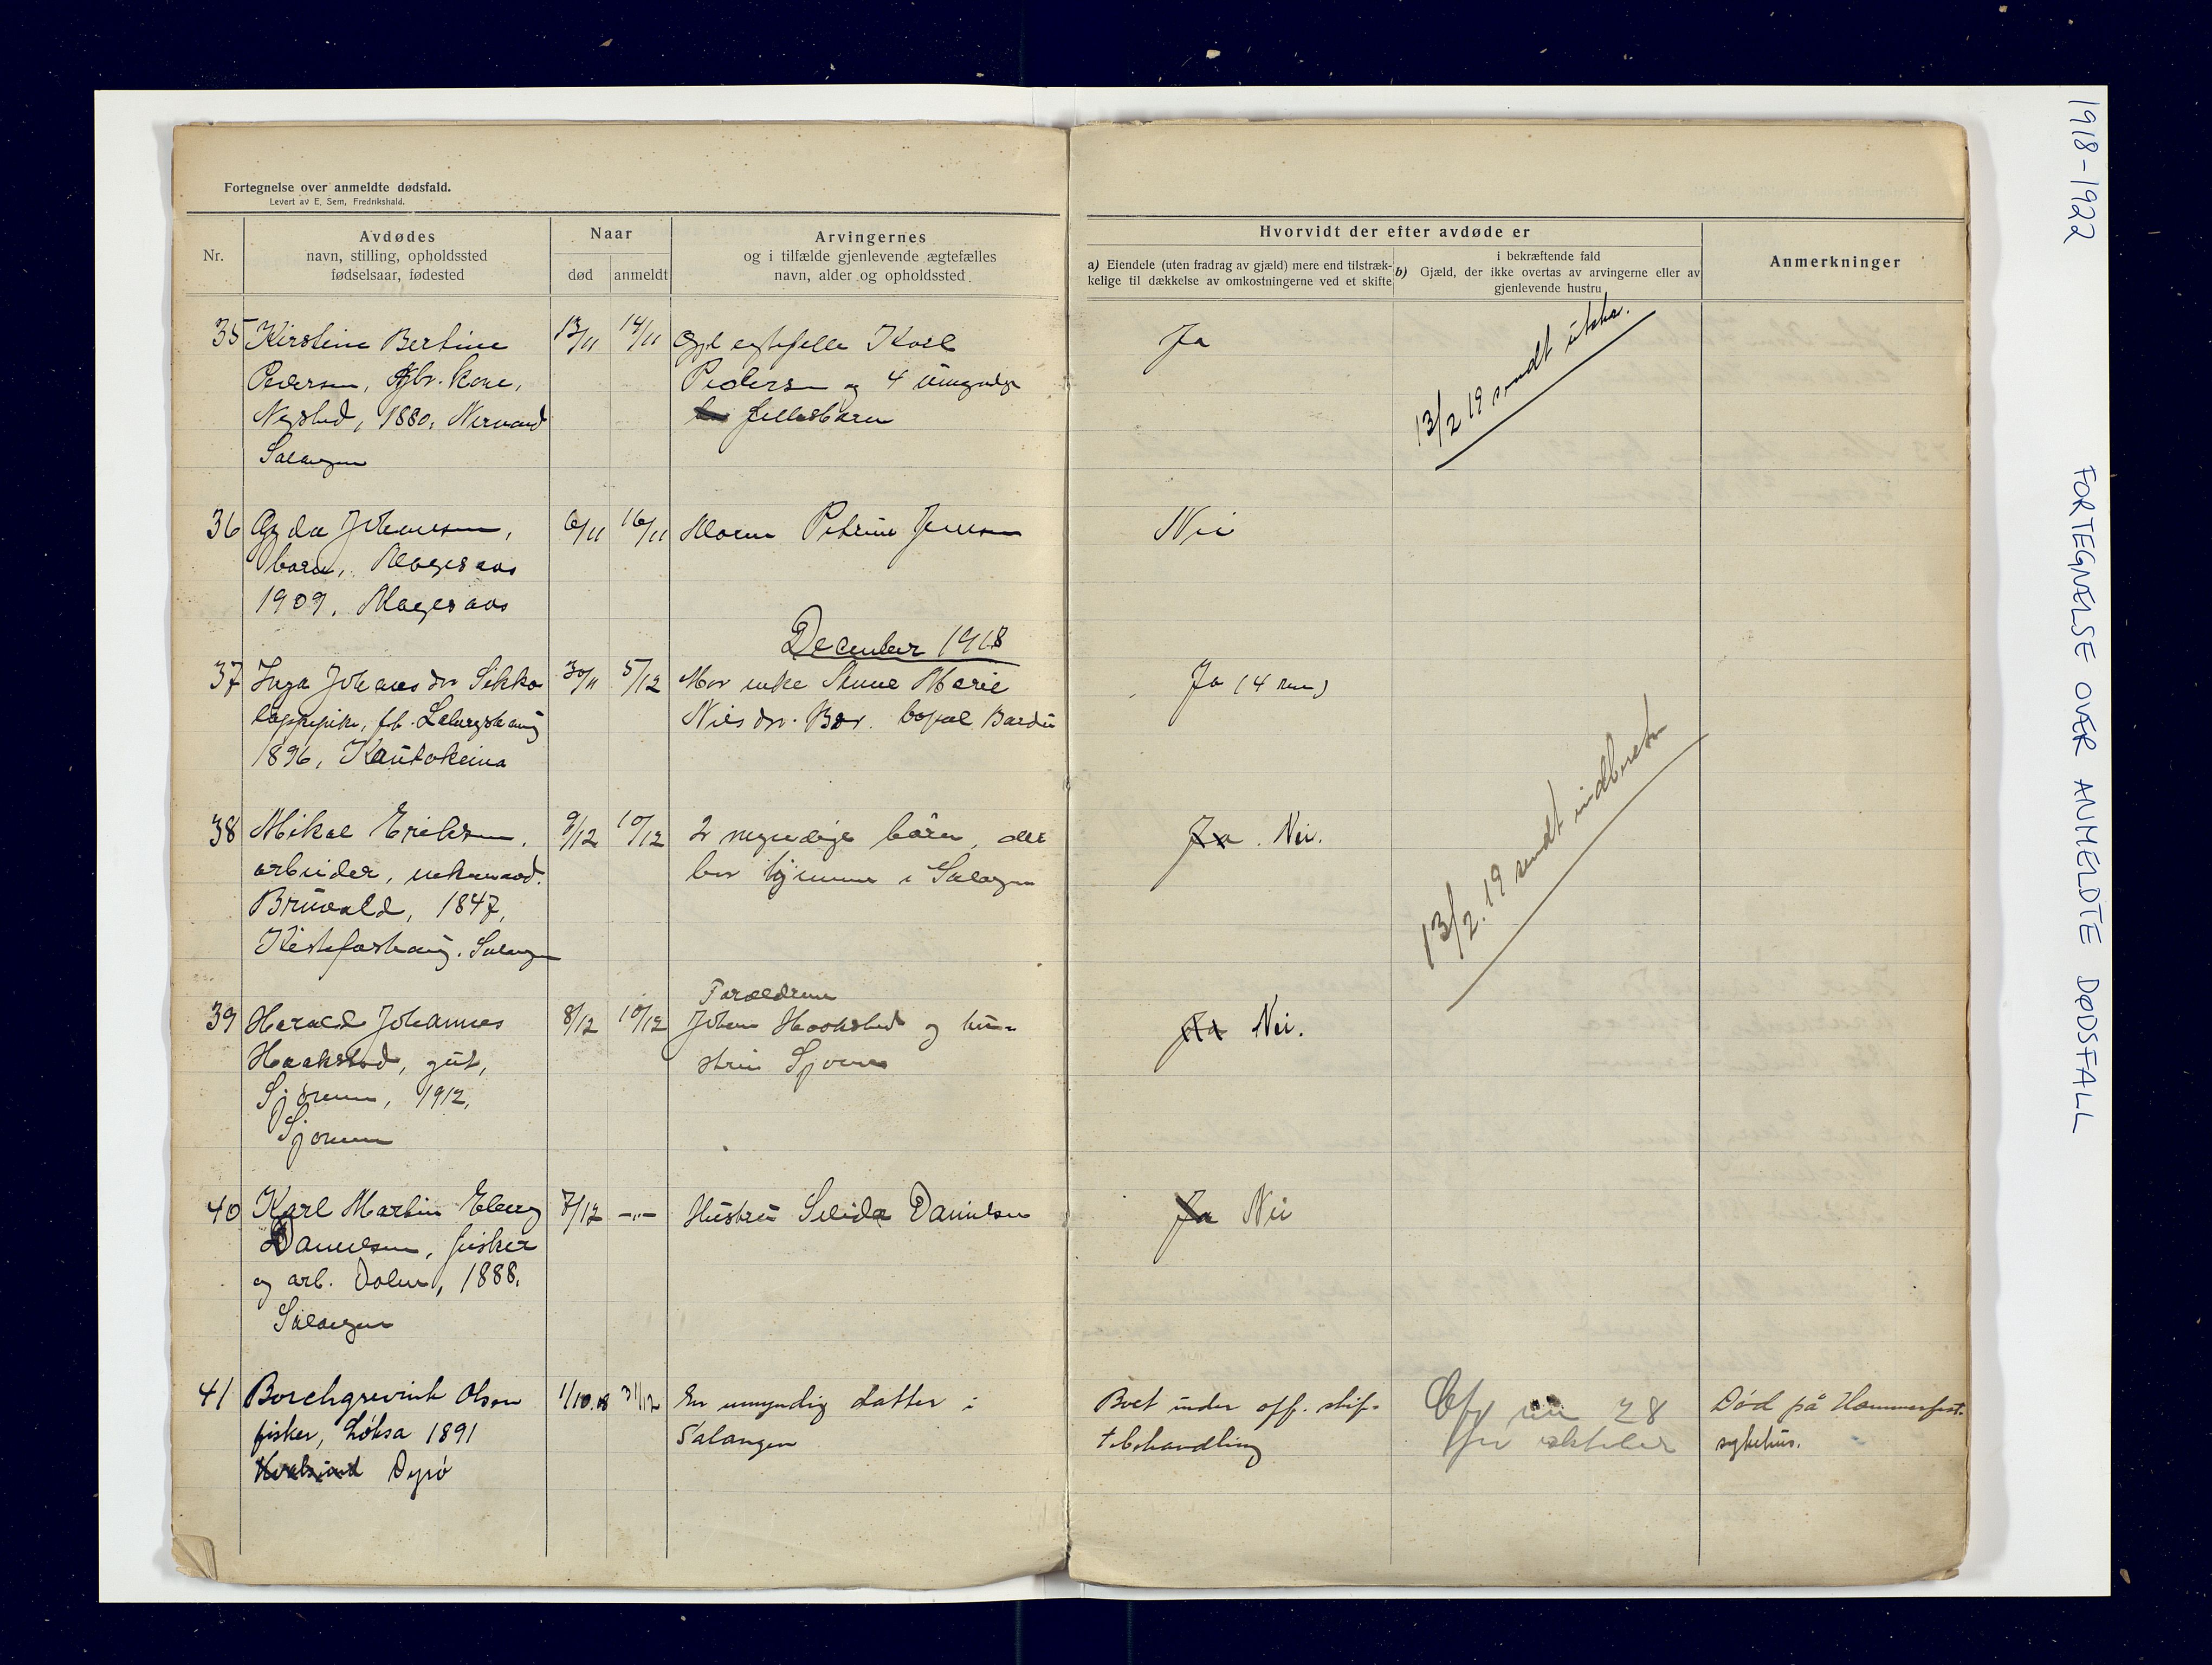 Fortegnelse over anmeldte dødsfald.
Levert av E. Sem, Fredrikshald.
Nr.
Avdødes
navn, stilling, opholdssted
fødselsaar, fødested
Naar
død
anmeldt
Arvingernes
og i tilfælde gjenlevende ægtefælles
navn, alder og opholdssted
Hvorvidt der efter avdøde er
a) Eiendele (uten fradrag av gjæld) mere end tilstræk-
kelige til dækkelse av omkostningerne ved et skifte
i bekræftende fald
b) Gjæld, der ikke overtas av arvingerne eller av
gjenlevende hustru
Anmerkninger
35
Kirstine Bertine
Pedersen, gbr. kone,
1880,
Salangen
13/11
14/11
Karl
Pedersen og 4
fellesbarn
Ja
13/2 19 sendt
36
Gyda Johansen,
barn,
1909,
6/11
16/11
Moren Petrine Jensen
Nei
December 1918
37
Inga Johansdr Sikko
lappepike,
1896, Kautokeino
30/11
5/12
Mor enke Anne Marie
Nilsdr. Bær. bopæl Bardu
Ja
38
Mikal Eriksen,
arbeider,
Bruvald, 1847,
Salangen
9/12
10/12
2 myndige børn, alle
bor hjemme i Salangen
Ja. Nei.
13/2.19 sendt indberetn
39
Harald Johannes
Haakstad, gut,
Sjøvein, 1912,
Sjøvein
8/12
10/12
Forældrene
Johan Haakstad og hu-
stru
Ja Nei.
40
Karl Martin Eberg
Danielsen, fisker
og arb. 1888,
Salangen
7/12
-"-
Hustru Danielsen
Ja Nei
41
Borchgrevink Olsen
fisker, Løksa 1891
Dyrø
1/10.18
31/12
En umyndig datter i
Salangen
Boet under off. skif-
tebehandling
28
Død på Hammerfest
sykehus.
1918-1922 FORTEGNELSE OVER ANMELDTE DØDSFALL